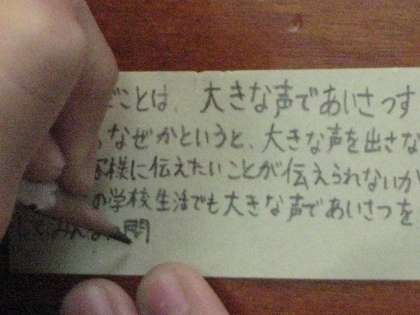 ことは、大きな声であいさつす
なぜかというと、大きな声を出さな
客様に伝えたいことが伝えられないか
の学校生活でも大きな声であいさつを
して、みんな